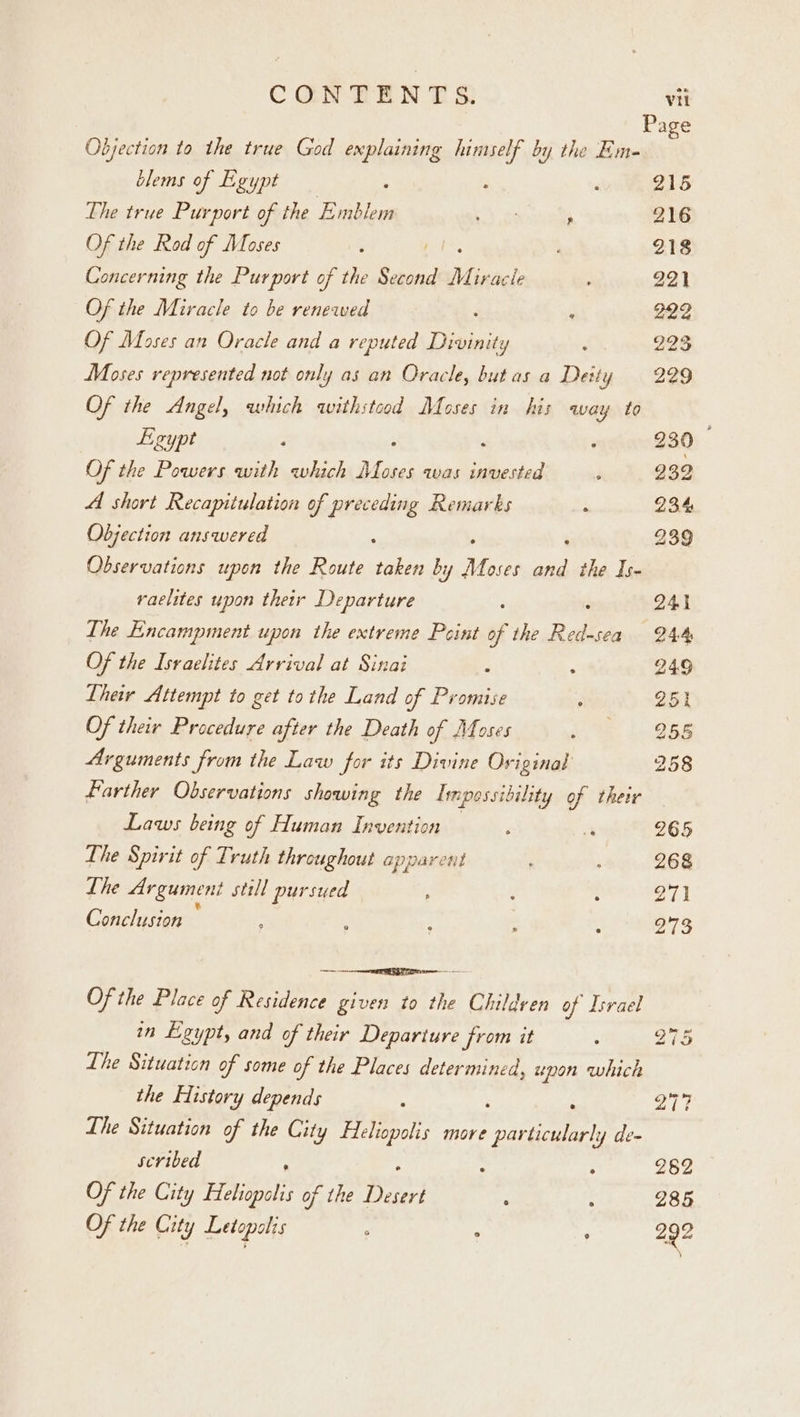 CONTENTS. vii
Page
Objection to the true God explaining himself by the Em-
blems of Egypt . . . 215
The true Purport of the Emblem . . 216
Of the Rod of Moses . . . 218
Concerning the Purport of the Second Miracle . 221
Of the Miracle to be renewed . . 222
Of Moses an Oracle and a reputed Divinity . 223
Moses represented not only as an Oracle, but as a Deity 229
Of the Angel, which withstood Moses in his way to
Egypt . . . . 230
Of the Powers with which Moses was invested . 232
A short Recapitulation of preceding Remarks . 234
Objection answered . . . 239
Observations upon the Route taken by Moses and the Is-
raelites upon their Departure . . 241
The Encampment upon the extreme Point of the Red-sea 244
Of the Israelites Arrival at Sinai . . 249
Their Attempt to get to the Land of Promise . 251
Of their Procedure after the Death of Moses . 255
Arguments from the Law for its Divine Original 258
Farther Observations showing the Impossibility of their
Laws being of Human Invention . . 265
The Spirit of Truth throughout apparent . . 268
The Argument still pursued . . . 271
Conclusion . . . . . 273
Of the Place of Residence given to the Children of Israel
in Egypt, and of their Departure from it . 275
The Situation of some of the Places determined, upon which
the History depends . . . 277
The Situation of the City Heliopolis more particularly de-
scribed . . . . 282
Of the City Heliopolis of the Desert . . 285
Of the City Letopolis . . . 292